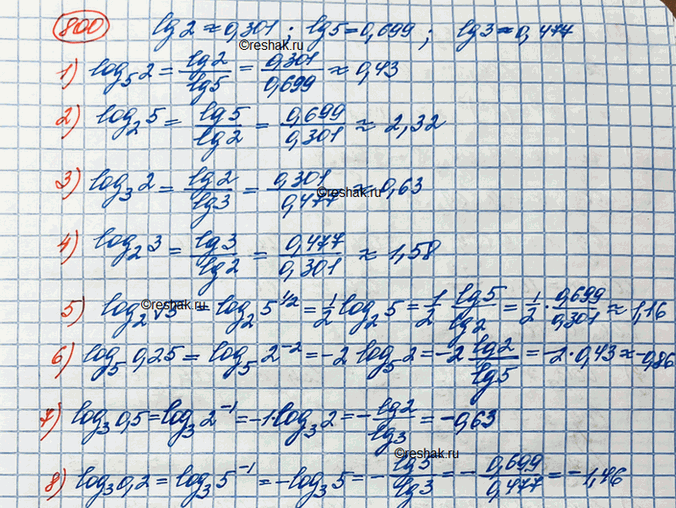 800 lg 2 ≈ 0,301 ; lg 5 = 0,699 ; lg 3 ≈ 0,477
©reshak.ru
1) log₅2 = lg2/lg5 = 0,301/0,699 ≈ 0,43
2) log₂5 = lg5/lg2 = 0,699/0,301 ≈ 2,32
3) log₃2 = lg2/lg3 = 0,301/0,477 ≈ 0,63
©reshak.ru
4) log₂3 = lg3/lg2 = 0,477/0,301 ≈ 1,58
©reshak.ru
5) log₂√5 = log₂5^1/2 = 1/2 log₂5 = 1/2 · lg5/lg2 = 1/2 · 0,699/0,301 ≈ 1,16
6) log₅0,25 = log₅2⁻² = -2 log₅2 = -2 lg2/lg5 = -2·0,43 ≈ -0,86
7) log₃0,5 = log₃2⁻¹ = -1·log₃2 = - lg2/lg3 = -0,63
©reshak.ru
8) log₃0,2 = log₃5⁻¹ = -log₃5 = - lg5/lg3 = - 0,699/0,477 = -1,46